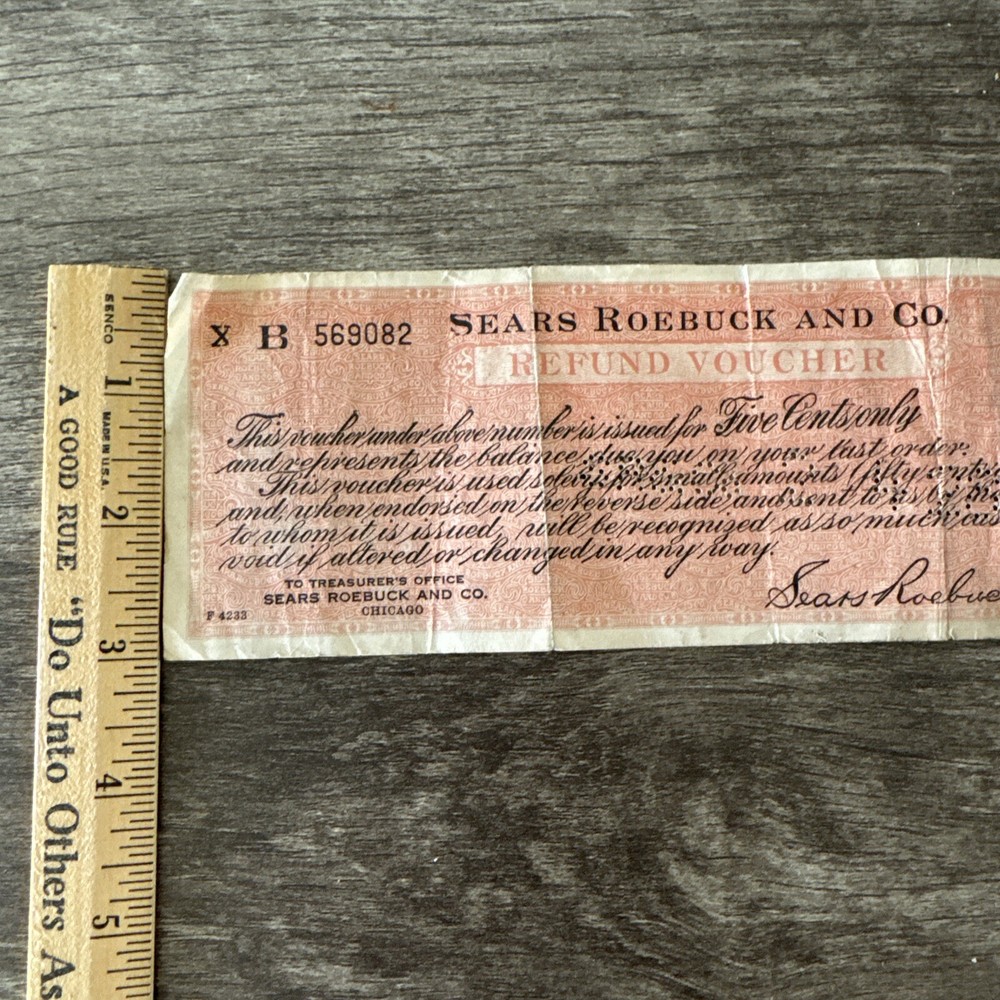 X B 569082
SEARS ROEBUCK AND CO.
REFUND VOUCHER
This voucher under above number is issued for Five Cents only
and represents the balance due you on your last order.
This voucher is used solely for small amounts (fifty cents
and, when endorsed on the reverse side and sent to us by the
to whom it is issued, will be recognized as so much cas
void if altered or changed in any way.
TO TREASURER'S OFFICE
SEARS ROEBUCK AND CO.
CHICAGO
F 4233
Sears Roebuc
SENCO
MADE IN U.S.A.
1 2 3 4 5
A GOOD RULE "Do Unto Others As